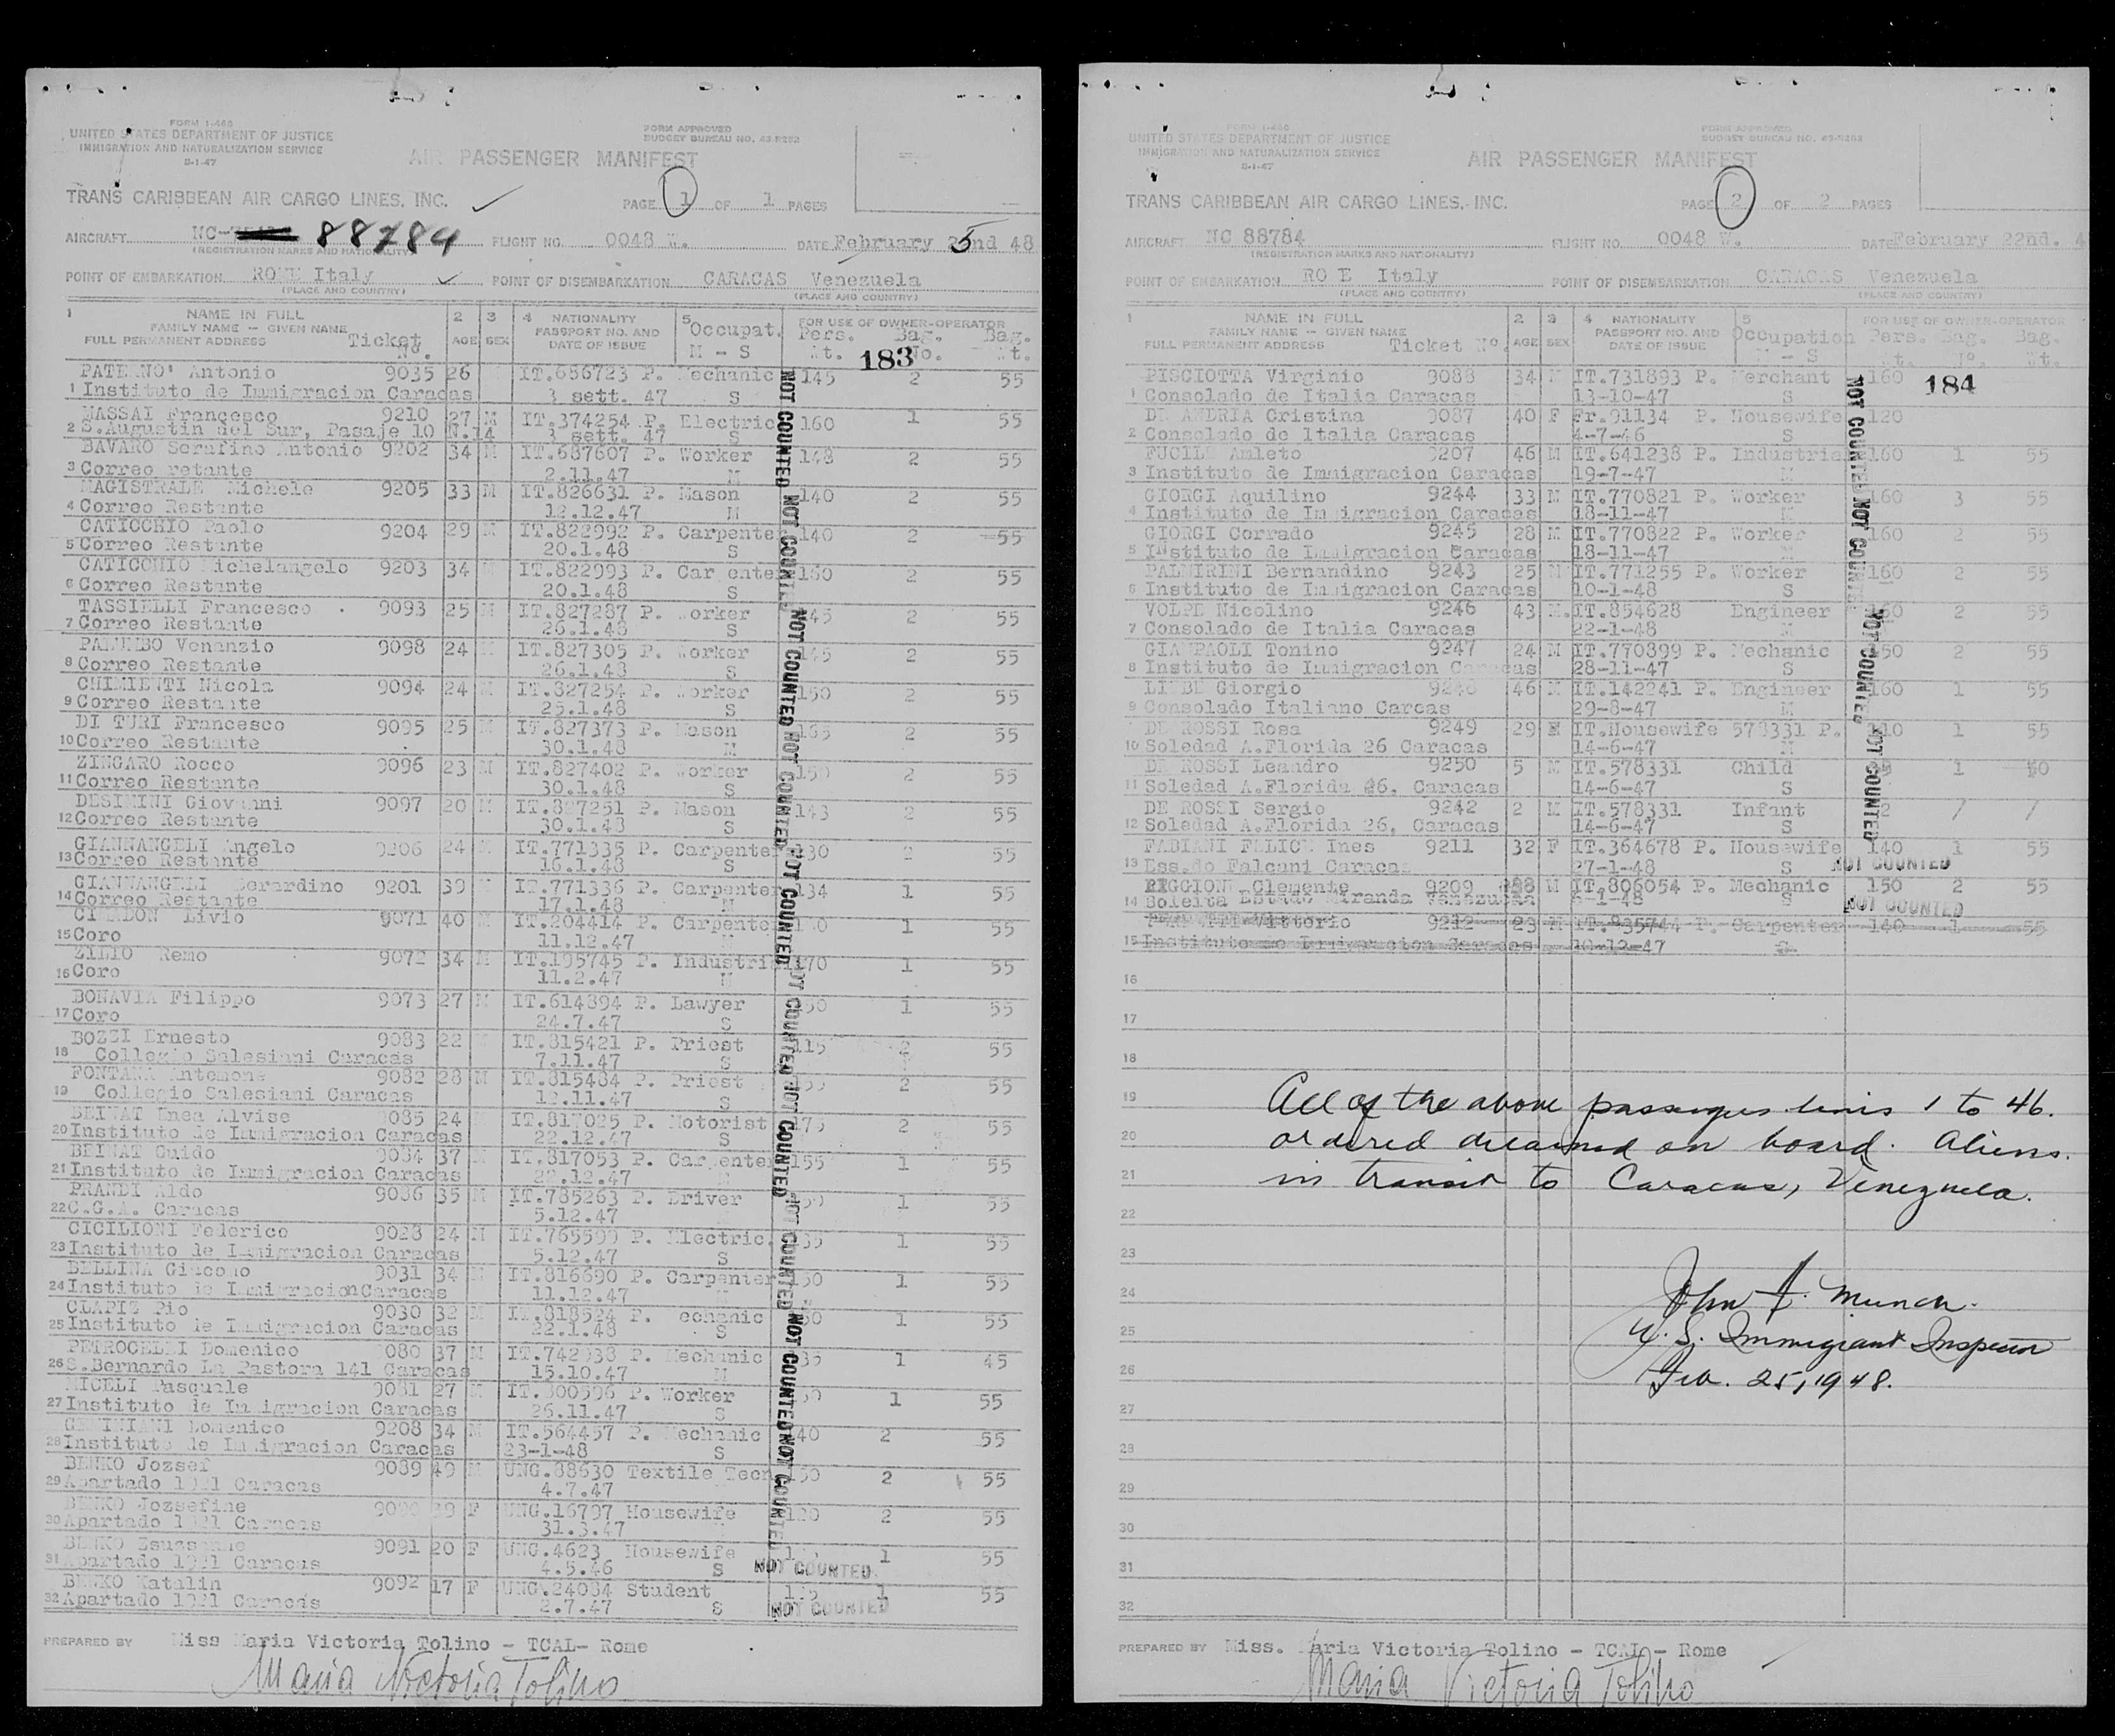 FORM I-466
UNITED STATES DEPARTMENT OF JUSTICE
IMMIGRATION AND NATURALIZATION SERVICE
8-1-47
FORM APPROVED
BUDGET BUREAU NO. 43-R282
AIR PASSENGER MANIFEST
TRANS CARIBBEAN AIR CARGO LINES, INC.
PAGE 1 OF 1 PAGES
AIRCRAFT NC- 88784 FLIGHT NO. 0048 W. DATE February 25nd 48
(REGISTRATION MARKS AND NATIONALITY)
POINT OF EMBARKATION ROME Italy POINT OF DISEMBARKATION CARACAS Venezuela
(PLACE AND COUNTRY) (PLACE AND COUNTRY)
1 NAME IN FULL 2 3 4 NATIONALITY 5 Occupat. FOR USE OF OWNER-OPERATOR
FAMILY NAME -- GIVEN NAME PASSPORT NO. AND Pers. Bag. Bag.
FULL PERMANENT ADDRESS Ticket No. AGE SEX DATE OF ISSUE M - S Wt. No. Wt.
183
PATERNO' Antonio 9035 26 IT.686723 P. Mechanic 145 2 55
1 Instituto de Immigracion Caracas 3 sett. 47 S
MASSAI Francesco 9210 27 M IT.374254 P. Electric 160 1 55
2 S.Augustin del Sur, Pasaje 10 N.14 3 sett. 47 S
BAVARO Serafino Antonio 9202 34 M IT.687607 P. Worker 148 2 55
3 Correo retante 2.11.47 M
MAGISTRALE Michele 9205 33 M IT.826631 P. Mason 140 2 55
4 Correo Restante 12.12.47 M
CATICCHIO Paolo 9204 29 M IT.822992 P. Carpente 140 2 55
5 Correo Restante 20.1.48 S
CATICCHIO Michelangelo 9203 34 M IT.822993 P. Carpente 160 2 55
6 Correo Restante 20.1.48 S
TASSIELLI Francesco 9093 25 M IT.827287 P. Worker 145 2 55
7 Correo Restante 26.1.48 S
PALUMBO Venanzio 9098 24 M IT.827305 P. Worker 145 2 55
8 Correo Restante 26.1.48 S
CHIMIENTI Nicola 9094 24 M IT.827254 P. Worker 150 2 55
9 Correo Restante 25.1.48 S
DI TURI Francesco 9095 25 M IT.827373 P. Mason 165 2 55
10 Correo Restante 30.1.48 M
ZINGARO Rocco 9096 23 M IT.827402 P. Worker 150 2 55
11 Correo Restante 30.1.48 S
DESIMINI Giovanni 9097 20 M IT.827251 P. Mason 143 2 55
12 Correo Restante 30.1.48 S
GIANNANGELI Angelo 9206 24 M IT.771335 P. Carpenter 130 2 55
13 Correo Restante 16.1.48 S
GIANNANGELI Berardino 9201 39 M IT.771336 P. Carpenter 134 1 55
14 Correo Restante 17.1.48 M
Livio 9071 40 M IT.204414 P. Carpenter 1 55
15 Coro 11.12.47 M
ZILIO Remo 9072 34 M IT.195745 P. Industrial 170 1 55
16 Coro 11.2.47 M
BONAVIA Filippo 9073 27 M IT.614894 P. Lawyer 150 1 55
17 Coro 24.7.47 S
BOZZI Ernesto 9083 22 IT.815421 P. Priest 115 2 55
18 Collegio Salesiani Caracas 7.11.47 S
FONTANA Antemone 9082 28 M IT.815484 P. Priest 2 55
19 Collegio Salesiani Caracas 12.11.47 S
BEINAT Enea Alvise 9085 24 IT.817025 P. Motorist 175 2 55
20 Instituto de Immigracion Caracas 22.12.47 S
BEINAT Guido 9084 37 M IT.817053 P. Carpenter 155 1 55
21 Instituto de Immigracion Caracas 22.12.47
PRANDI Aldo 9086 35 M IT.785263 P. Driver 1 55
22 C.G.A. Caracas 5.12.47
CICILIONI Federico 9028 24 M IT.765599 P. Electric. 135 1 55
23 Instituto de Immigracion Caracas 5.12.47 S
BELLINA Giacomo 9031 34 M IT.816690 P. Carpenter 150 1 55
24 Instituto de ImmigracionCaracas 11.12.47
CLAPIZ Pio 9030 32 M IT.818524 P. Mechanic 1 55
25 Instituto de Immigracion Caracas 22.1.48 S
PETROCELLI Domenico 9080 37 M IT.742938 P. Mechanic 135 1 45
26 S.Bernardo La Pastora 141 Caracas 15.10.47 M
MICELI Pasquale 9081 27 M IT.800596 P. Worker 1 55
27 Instituto de Immigracion Caracas 26.11.47 S
GEMINIANI Domenico 9208 34 M IT.564457 P. Mechanic 140 2 55
28 Instituto de Immigracion Caracas 23-1-48 S
BENKO Jozsef 9089 49 M UNG.88630 Textile Tecn 150 2 55
29 Apartado 1921 Caracas 4.7.47
BENKO Jozsefine 9090 39 F UNG.16797 Housewife 120 2 55
30 Apartado 1921 Caracas 31.3.47
BENKO Zsuzsanne 9091 20 F UNG.4623 Housewife 1 55
31 Apartado 1921 Caracas 4.5.46 S NOT COUNTED
BENKO Katalin 9092 17 F UNG.24084 Student 115 1 55
32 Apartado 1921 Caracas 2.7.47 S NOT COUNTED
NOT COUNTED NOT COUNTED NOT COUNTED NOT COUNTED NOT COUNTED NOT COUNTED NOT COUNTED NOT COUNTED NOT COUNTED NOT COUNTED
PREPARED BY Miss Maria Victoria Tolino - TCAL- Rome
Maria Victoria Tolino
FORM I-466
UNITED STATES DEPARTMENT OF JUSTICE
IMMIGRATION AND NATURALIZATION SERVICE
8-1-47
FORM APPROVED
BUDGET BUREAU NO. 43-R282
AIR PASSENGER MANIFEST
TRANS CARIBBEAN AIR CARGO LINES, INC.
PAGE 2 OF 2 PAGES
AIRCRAFT NC 88784 FLIGHT NO. 0048 W. DATE February 22nd. 4
(REGISTRATION MARKS AND NATIONALITY)
POINT OF EMBARKATION RO E Italy POINT OF DISEMBARKATION CARACAS Venezuela
(PLACE AND COUNTRY) (PLACE AND COUNTRY)
1 NAME IN FULL 2 3 4 NATIONALITY 5 FOR USE OF OWNER-OPERATOR
FAMILY NAME -- GIVEN NAME PASSPORT NO. AND Occupation Pers. Bag. Bag.
FULL PERMANENT ADDRESS Ticket No. AGE SEX DATE OF ISSUE M - S Wt. No. Wt.
184
PISCIOTTA Virginio 9088 34 M IT.731893 P. Merchant 160
1 Consolado de Italia Caracas 13-10-47 S
DE ANDRIA Cristina 9087 40 F Fr.91134 P. Housewife 120
2 Consolado de Italia Caracas 4-7-46 S
FUCILE Amleto 9207 46 M IT.641238 P. Industrial 160 1 55
3 Instituto de Immigracion Caracas 19-7-47 M
GIORGI Aquilino 9244 33 M IT.770821 P. Worker 160 3 55
4 Instituto de Immigracion Caracas 18-11-47 M
GIORGI Corrado 9245 28 M IT.770822 P. Worker 160 2 55
5 Instituto de Immigracion Caracas 18-11-47 M
PALMIRINI Bernandino 9243 25 M IT.771255 P. Worker 160 2 55
6 Instituto de Immigracion Caracas 10-1-48 S
VOLPE Nicolino 9246 43 M. IT.854628 Engineer 2 55
7 Consolado de Italia Caracas 22-1-48 M
GIAMPAOLI Tonino 9247 24 M IT.770899 P. Mechanic 150 2 55
8 Instituto de Immigracion Caracas 28-11-47 S
Giorgio 46 M IT.142241 P. Engineer 160 1 55
9 Consolado Italiano Carcas 29-8-47 M
DE ROSSI Rosa 9249 29 IT.Housewife 578331 P. 110 1 55
10 Soledad A.Florida 26 Caracas 14-6-47 M
DE ROSSI Leandro 9250 5 M IT.578331 Child 1
11 Soledad A.Florida 26. Caracas 14-6-47 S
DE ROSSI Sergio 9242 2 M IT.578331 Infant / /
12 Soledad A.Florida 26, Caracas 14-6-47 S
FABIANI FELICE Ines 9211 32 F IT.364678 P. Housewife 140 1 55
13 Ess.do Falcani Caracas 27-1-48 S NOT COUNTED
RIGGIONE Clemente 9209 38 M IT.806054 P. Mechanic 150 2 55
14 Soleita Estado Miranda Venezuela 8-1-48 S NOT COUNTED
Vittorio 9212 23 M IT.835744 P. Carpenter 140 1 55
15 Instituto de Immigracion Caracas 10-12-47 S
NOT COUNTED NOT COUNTED NOT COUNTED NOT COUNTED
16
17
18
19 All of the above passengers lines 1 to 46.
20 ordered detained on board. Aliens.
21 in transit to Caracas, Venezuela.
22
23
24 John F. Munch.
25 U. S. Immigrant Inspector
26 Feb. 25, 1948.
27
28
29
30
31
32
PREPARED BY Miss. Maria Victoria Tolino - TCAL - Rome
Maria Victoria Tolino